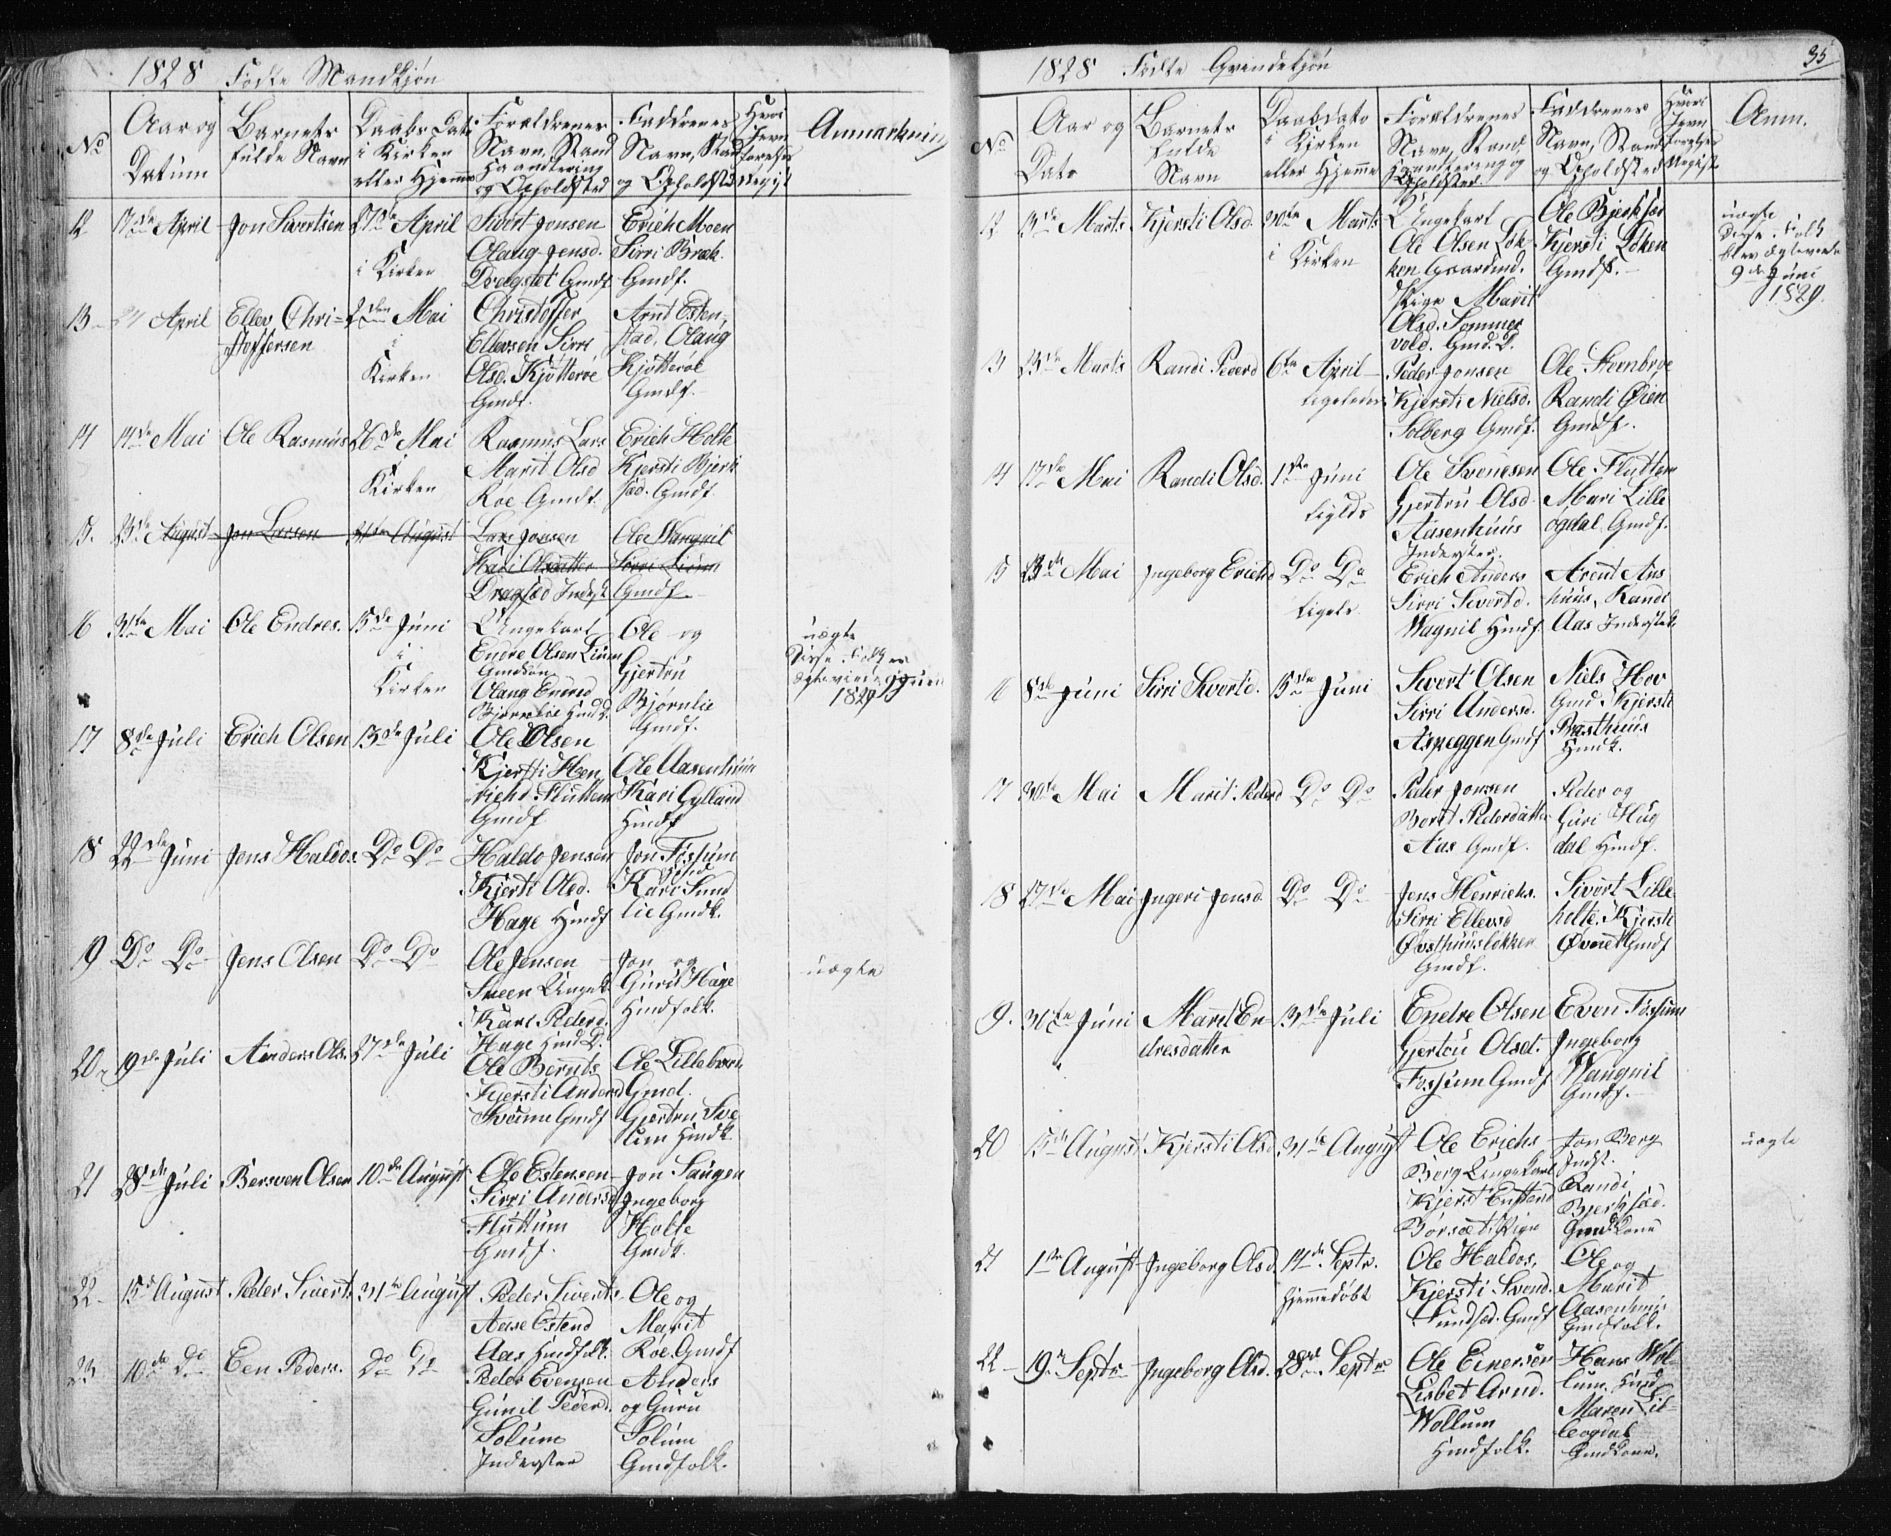 1828 Fødte Mandkjøn
No
Aar og Datum
Barnets fulde Navn
Daabs Dato i Kirken eller Hjemme
Forældrenes Navn, Stand Haandtering og Opholdsted
Faddrenes Navn, Stand og Opholdsted
Anmærkning
12 17de April Jon Sivertsen 27de April i Kirken
Sivert Jonsen
Olaug Jensd.
Dragstet Gmdf.
Erich Moen
Sirri Bræk.
Gmdf.
13 April Ellev Christoffersen 2den Mai i Kirken
Christoffer
Ellevsen Sirri
Olsd. Kjøtterøe
Gmdf.
Arnt Estenstad, Olaug
Kjøtterøe
Gmdf.
14 14de Mai Ole Rasmus 26de Mai i Kirken
Rasmus Lars
Marit Olsd
Roe Gmdf.
Erich Holte
Kjersti Bjerksæd. Gmdf.
15. 23de August Jon Larsen 31te August
Lars Jonsen
Kari Olsdatter
Dragsæd Inderst
Ole Wangnil
Sirri Lium
Gmdf.
16 31te Mai Ole Endres. 15de Juni i Kirken
Ungekarl
Endre Olsen Lium
Gmdsøn
Olaug Endresd
Bjørnlie Hmd D.
Ole og
Gjertru
Bjørnlie
Gmdf.
uægte
Disse Folk er
1829
17 8de Juli Erich Olsen 13de Juli
Ole Olsen
Kjersti Henrichd. Fluttum
Gmdf
Ole Aasenhuus
Kari Gylland
Hmdf
18 22de Juni Jens Haldos. Do Do
Haldo Jensen
Kjersti Olsd.
Hage Hmdf
Jon Fossum
Kari Sundlie Gmdk.
19 Do Do Jens Olsen Do Do
Ole Jensen
Sneen Ungek.
Kari Pedersd.
Hage Hmd D.
Jon og
Guru Hage
Hmdfolk.
uægte
20 19de Juli Anders Ols. 27de Juli
Ole Bernts
Kjersti Andersd
Sveium Gmdf
Ole Lillebord
Gmd.
Gjertru Sveium Hmdk.
21 28de Juli Bersven Olsen 10de August
Ole Estensen
Sirri Andersd
Fluttum
Gmdf.
Jon Haugen
Ingeborg
Holte
Gmdk.
22 15de August Peder Sivert. 31te August
Peder Siverts
Aase Estend
Aas Hmdfolk.
Ole og
Marit
Roe. Gmdf
23 10de Do Een Peders. Do Do
Peder Evensen
Gunil Pedersd.
Solum
Inderster
Anders
og Guru
Solum
Gmdfolk.
1828 Fødte Qvindekjøn 35
No
Aar og Dato
Barnets fulde Navn
Daabsdato i Kirken eller Hjemme
Forældrenes Navn, Stand Haandtering og Opholdsted
Faddrenes Navn, Stand og Opholdsted
Anm.
12 13de Marts Kjersti Olsd. 30te Marts i Kirken
Ungekarl
Ole Olsen Løkken Gaardmd.
Pige Marit
Olsd. Sommervold. Gmd. D.
Ole Bjerksæd
Kjersti Løkken
Gmdf.
uægte
Disse Folk
blev ægteviede
9de Juni
1829.
13 23de Marts Randi Pedersd 6te April ligeledes
Peder Jonsen
Kjersti Nielsd.
Solberg Gmdf.
Ole Steenbroe
Randi Øien
Gmdf.
14 17de Mai Randi Olsd. 1ste Juni
Ole Svensen
Gjertru Olsd.
Aasenhuus
Inderster.
Ole Fluttum
Mari Lilleogdal Gmdf.
15 23de Mai Ingeborg Erichd Do Do ligele
Erich Anders
Sirri Sivertsd.
Wagnil Hmdf
Arent Aushuus, Randi
Aas Inderstek.
16 8de Juni Sirri Sivertsd. 15de Juni
Sivert Olsen
Sirri Andersd.
Aspeggen Gmdf
Niels Hov
Gmd Kjersti
Præsthuus
Hmdk.
17 30te Mai Marit Pedersd Do Do
Peder Jonsen
Berit Pedersdatter
Aas Gmdf.
Peder og
Guri Hugdal Hmdf.
18 27de Mai Ingeri Jensd. Do Do
Jens Henrichs.
Sirri Ellevsd
Østhuusløkken
Gmdf.
Sivert Lilleholte. Kjersti
Øvret Gmdf
9. 31te Juni Marit Endresdatter 13de Juli
Endre Olsen
Gjertru Olsd.
Fossum Gmdf
Even Fossum
Ingeborg
Wangnil
Gmdf.
20 15de August Kjersti Olsd 31te August
Ole Erichs
Berg Ungekarl
Kjersti
Børsæt Pige
Jon Berg
Indst.
Randi
Bjerksæd.
Gmdkone
uægte
21 1ste August Ingeborg Olsd. 14de Septr. hjemmedøbt
Ole Haldos,
Kjersti Svend.
Sundsæd. Gmdf
Ole og
Marit
Aasenhuus
Gmdfolk.
22 19de Septr Ingeborg Olsd. 28de Septr
Ole Einersen
Lisbet Arnd.
Wollum
Hmdfolk.
Hans Wollum. Hmd
Maren Lilleogdal
Gmdkone.